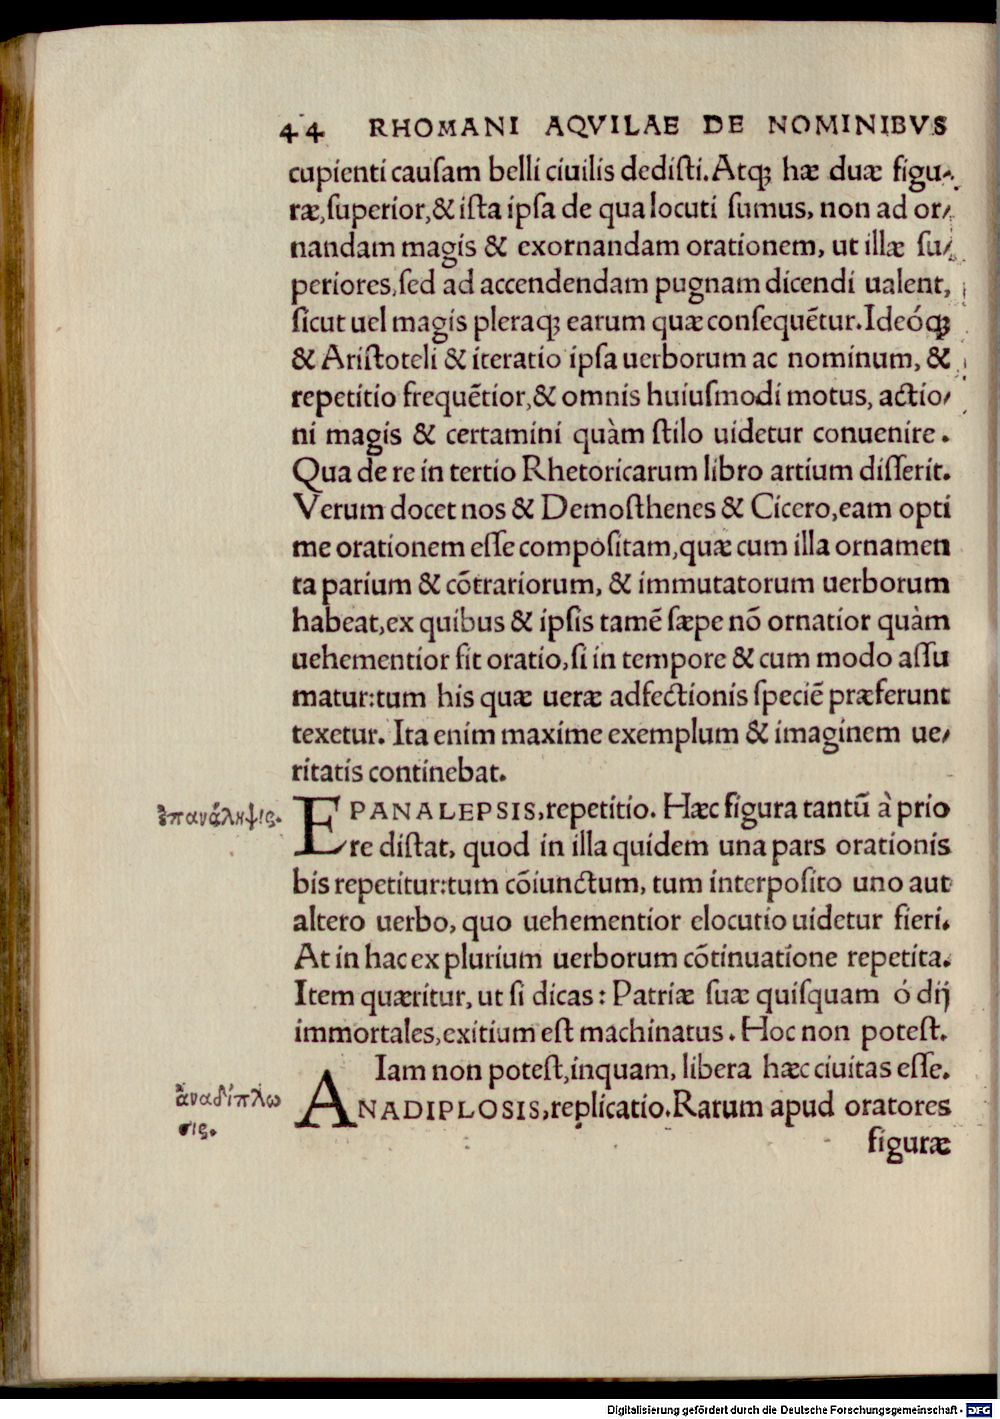 44 RHOMANI AQVILAE DE NOMINIBVS
cupienti cauſam belli ciuilis dediſti. Atq; hæ duæ figu-
ræ, ſuperior, & iſta ipſa de qua locuti ſumus, non ad or-
nandam magis & exornandam orationem, ut illæ ſu-
periores, ſed ad accendendam pugnam dicendi ualent,
ſicut uel magis pleraq; earum quæ conſequẽtur. Ideóq;
& Ariſtoteli & iteratio ipſa uerborum ac nominum, &
repetitio frequẽtior, & omnis huiuſmodi motus, actio-
ni magis & certamini quàm ſtilo uidetur conuenire.
Qua de re in tertio Rhetoricarum libro artium diſſerit.
Verum docet nos & Demoſthenes & Cicero, eam opti
me orationem eſſe compoſitam, quæ cum illa ornamen
ta parium & cõtrariorum, & immutatorum uerborum
habeat, ex quibus & ipſis tamẽ ſæpe nõ ornatior quàm
uehementior fit oratio, ſi in tempore & cum modo aſſu
matur: tum his quæ ueræ adfectionis ſpeciẽ præferunt
texetur. Ita enim maxime exemplum & imaginem ue-
ritatis continebat.
ἐπανάληψις.
EPANALEPSIS, repetitio. Hæc figura tantũ à prio
re diſtat, quod in illa quidem una pars orationis
bis repetitur: tum cõiunctum, tum interpoſito uno aut
altero uerbo, quo uehementior elocutio uidetur fieri.
At in hac ex plurium uerborum cõtinuatione repetita.
Item quæritur, ut ſi dicas: Patriæ ſuæ quiſquam ó dij
immortales, exitium eſt machinatus. Hoc non poteſt.
Iam non poteſt, inquam, libera hæc ciuitas eſſe.
ἀναδίπλω
σις.
ANADIPLOSIS, replicatio. Rarum apud oratores
figuræ
Digitalisierung gefördert durch die Deutsche Forschungsgemeinschaft - DFG